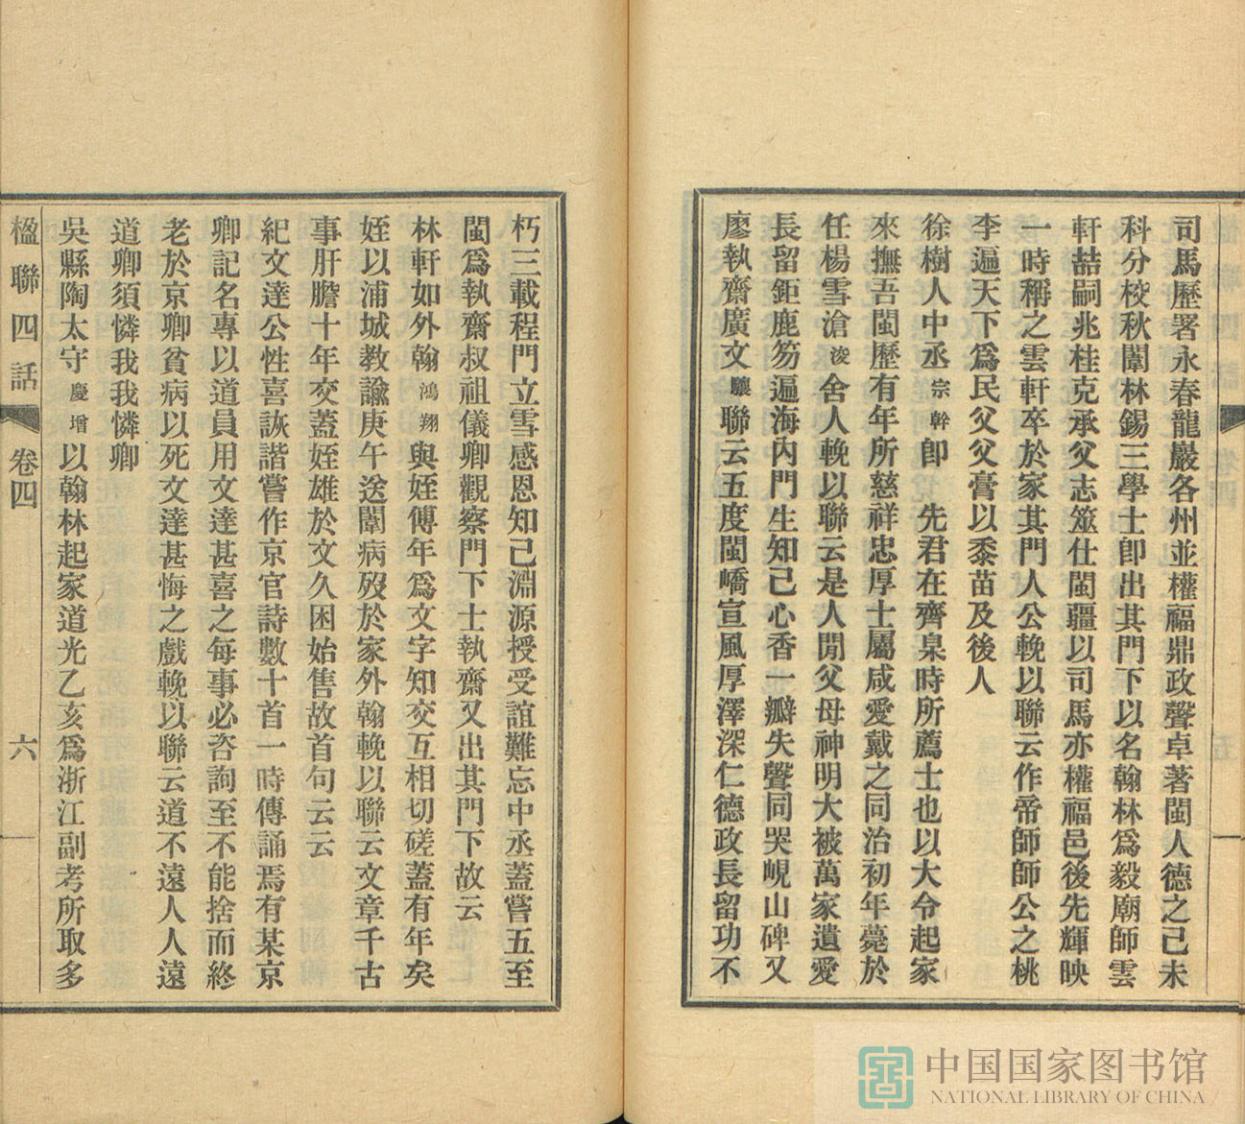 司馬歷署永春龍巖各州並權福鼎政聲卓著閩人德之己未
科分校秋闈林錫三學士卽出其門下以名翰林爲毅廟師雲
軒喆嗣兆桂克承父志筮仕閩疆以司馬亦權福邑後先輝映
一時稱之雲軒卒於家其門人公輓以聯云作帝師師公之桃
李遍天下爲民父父膏以黍苗及後人
徐樹人中丞宗幹卽 先君在齊臬時所薦士也以大令起家
來撫吾閩歷有年所慈祥忠厚士屬咸愛戴之同治初年薨於
任楊雪滄浚舍人輓以聯云是人閒父母神明大被萬家遺愛
長留鉅鹿笏遍海內門生知己心香一瓣失聲同哭峴山碑又
廖執齋廣文驤聯云五度閩嶠宣風厚澤深仁德政長留功不
朽三載程門立雪感恩知己淵源授受誼難忘中丞蓋嘗五至
閩爲執齋叔祖儀卿觀察門下士執齋又出其門下故云
林軒如外翰鴻翔與姪傅年爲文字知交互相切磋蓋有年矣
姪以浦城教諭庚午送闈病歿於家外翰輓以聯云文章千古
事肝膽十年交蓋姪雄於文久困始售故首句云云
紀文達公性喜詼諧嘗作京官詩數十首一時傳誦焉有某京
卿記名專以道員用文達甚喜之每事必咨詢至不能捨而終
老於京卿貧病以死文達甚悔之戲輓以聯云道不遠人人遠
道卿須憐我我憐卿
吳縣陶太守慶增以翰林起家道光乙亥爲浙江副考所取多
楹聯四話 卷四 六
中国国家图书馆
NATIONAL LIBRARY OF CHINA